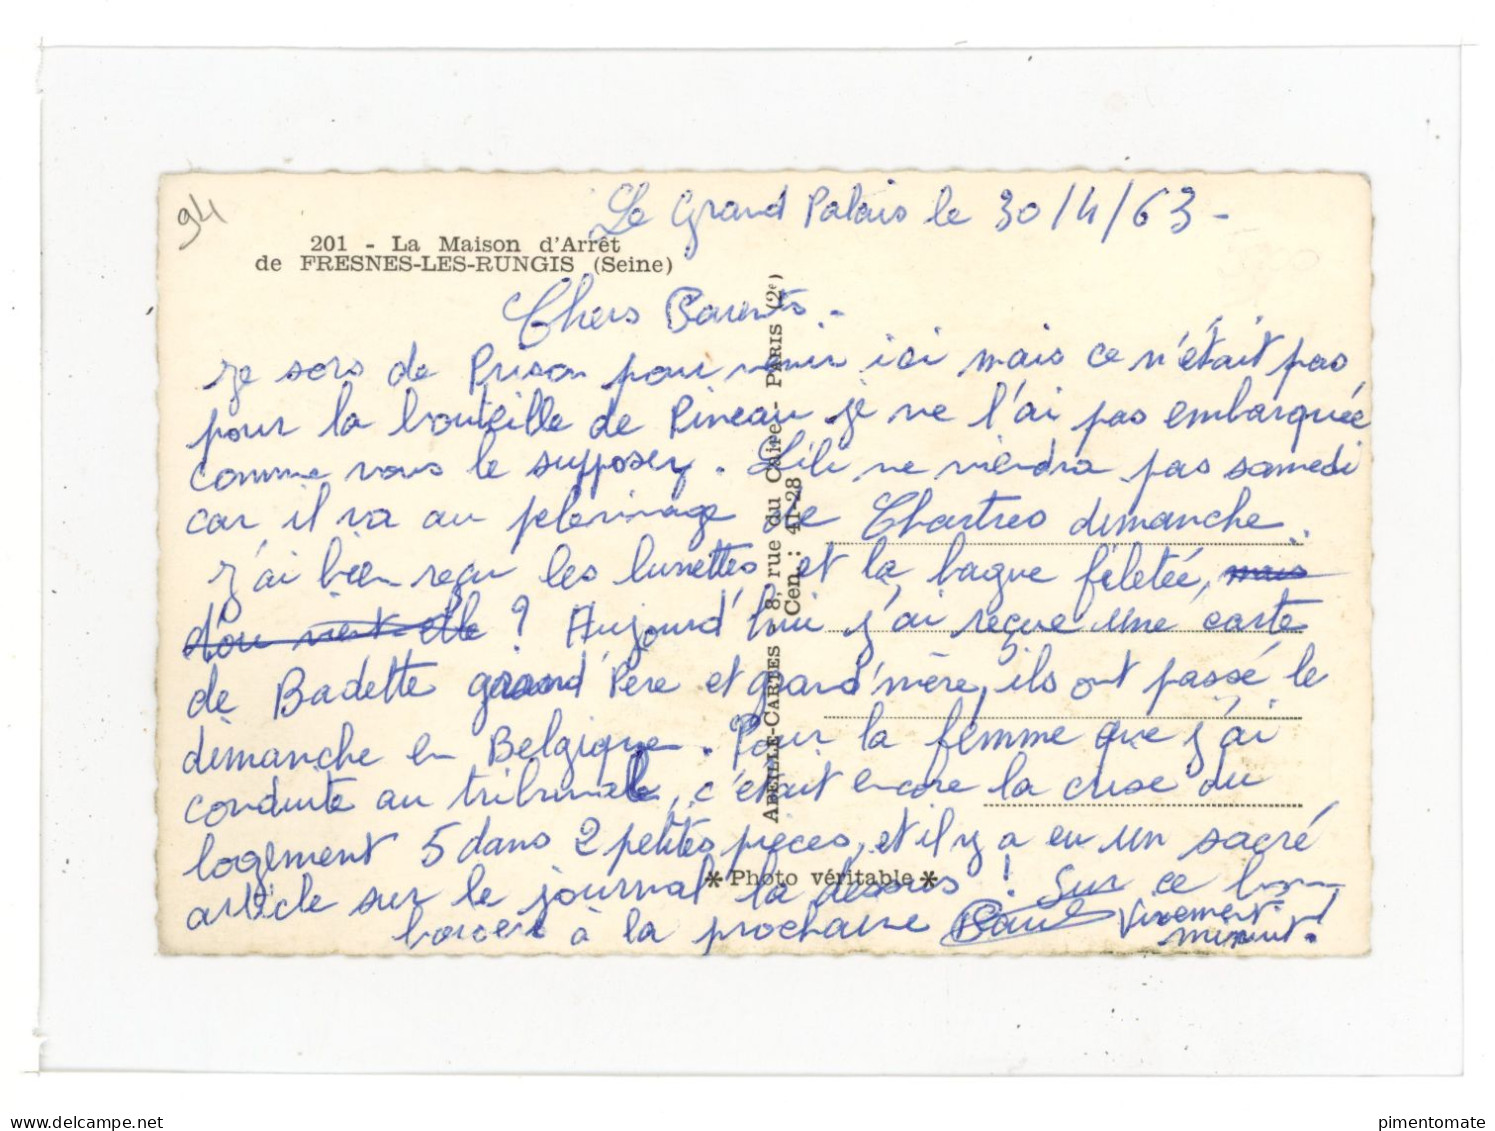 94
Le Grand Palais le 30/4/63 -
201 - La Maison d'Arrêt
de FRESNES-LES-RUNGIS (Seine)
Chers Parents -
Je sors de Prison pour venir ici mais ce n'était pas
pour la bouteille de Pineau je ne l'ai pas embarquée
comme vous le supposez. Lili ne viendra pas samedi
car il va au pelerinage de Chartres dimanche.
J'ai bien reçu les lunettes et la bague filetée, mais
d'ou vient elle ? Aujourd'hui j'ai reçue une carte
de Badette grand'Père et grand'mère, ils ont passé le
dimanche en Belgique. Pour la femme que j'ai
conduite au tribunal, c'était encore la crise du
logement 5 dans 2 petites pièces, et il y a eu un sacré
article sur le journal la dessus ! Sur ce bons
baisers à la prochaine Paul Vivement
minuit !
ABEILLE-CARTES - 8, rue du Caire - PARIS (2e)
Cen. : 41-28
* Photo véritable *
pimentomate.delcampe.net
pimentomate